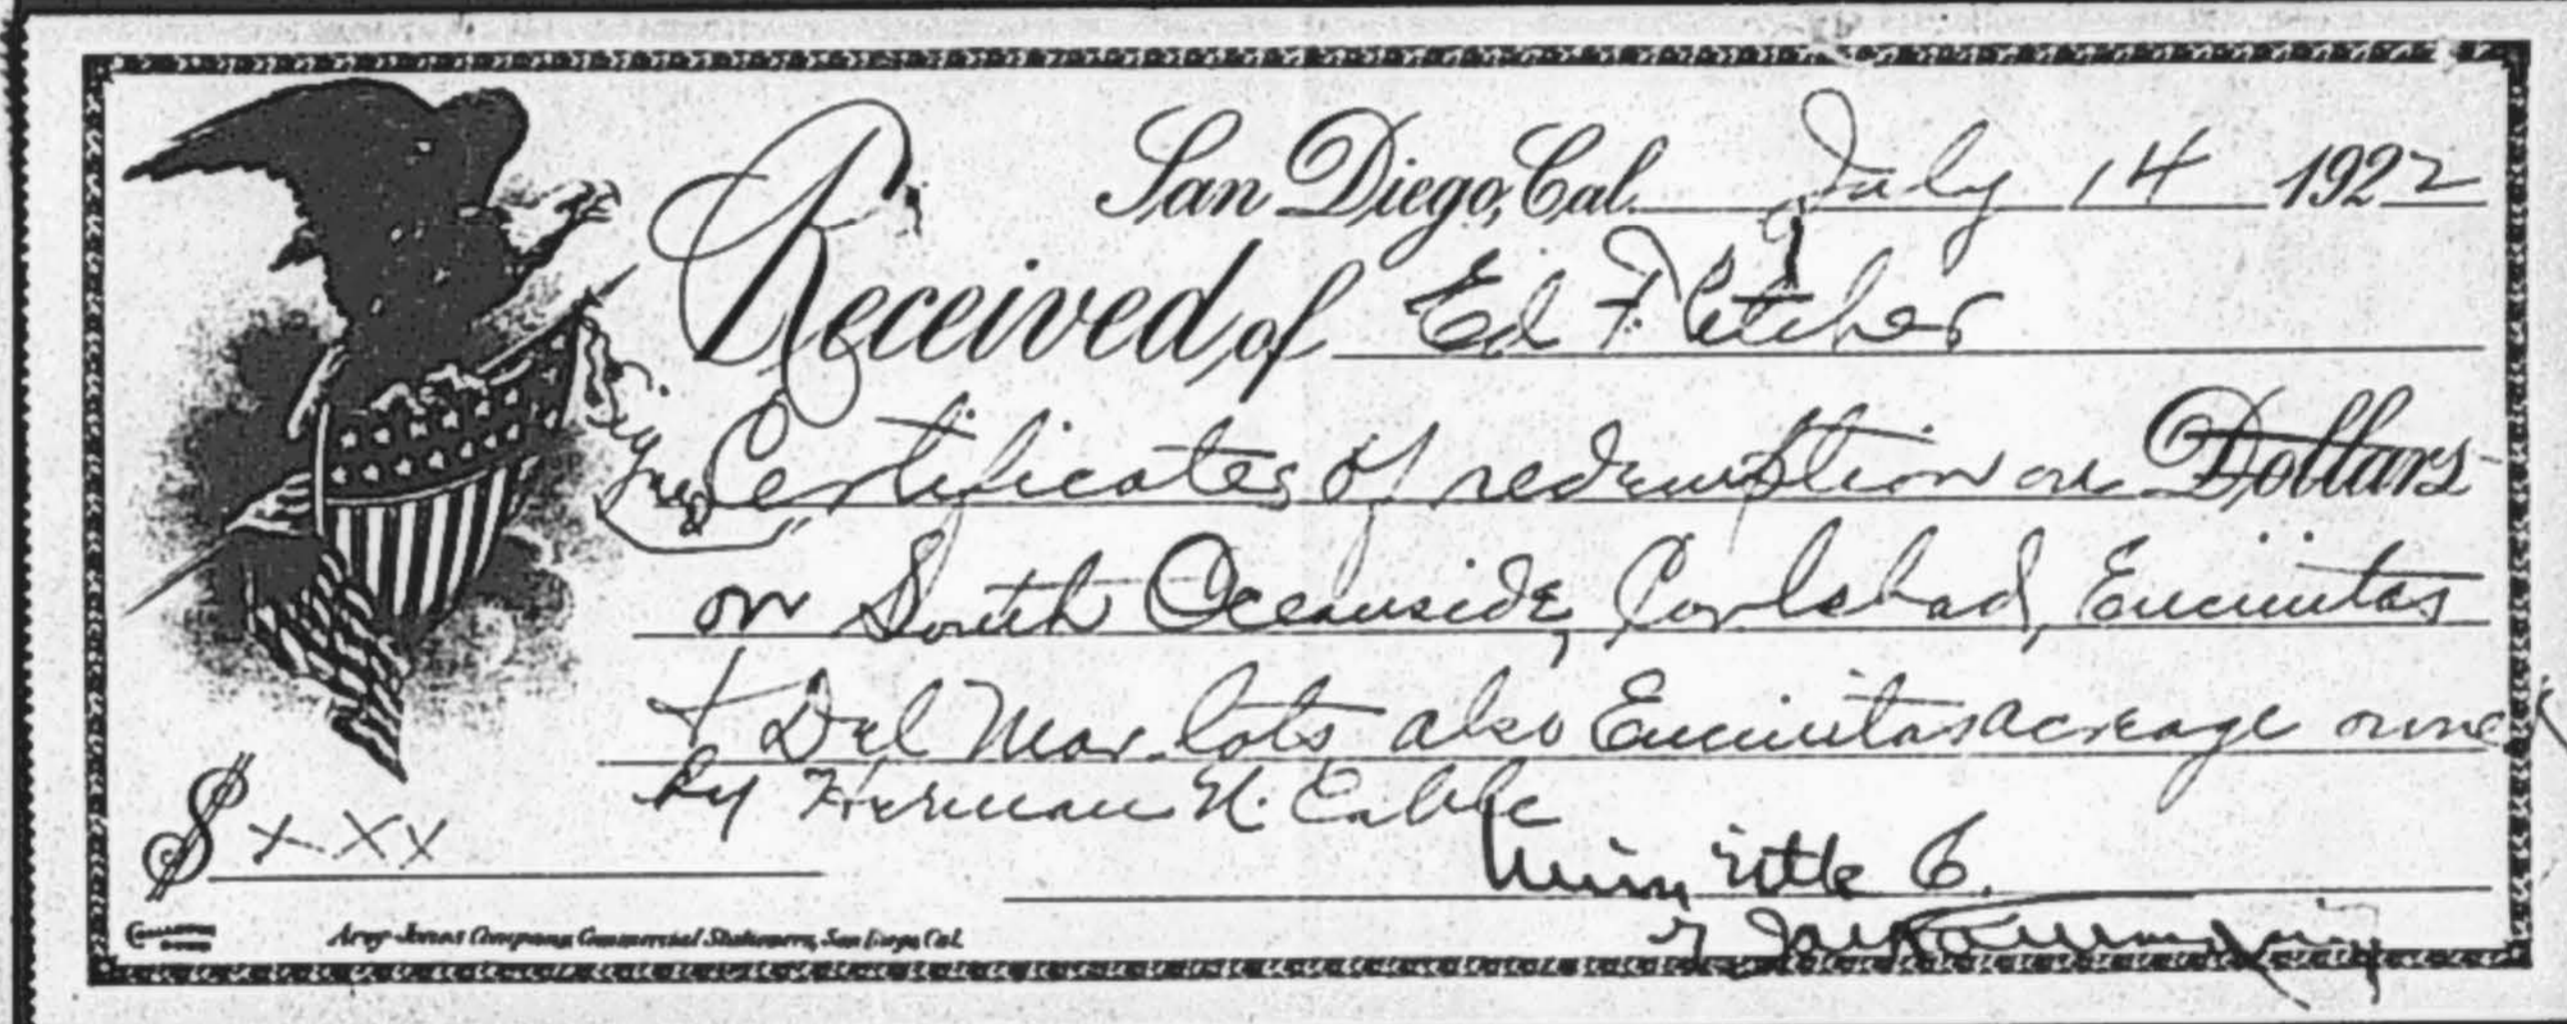 San Diego, Cal. July 14 1922
Received of Ed Fletcher
Certificates of redemption on Dollars
on South Oceanside, Carlsbad, Encinitas
+ Del Mar lots also Encinitas acreage owned
by Herman N. Eabbe
$ x x x
Union Title Co.
Arey-Jones Company Commercial Stationers, San Diego, Cal.